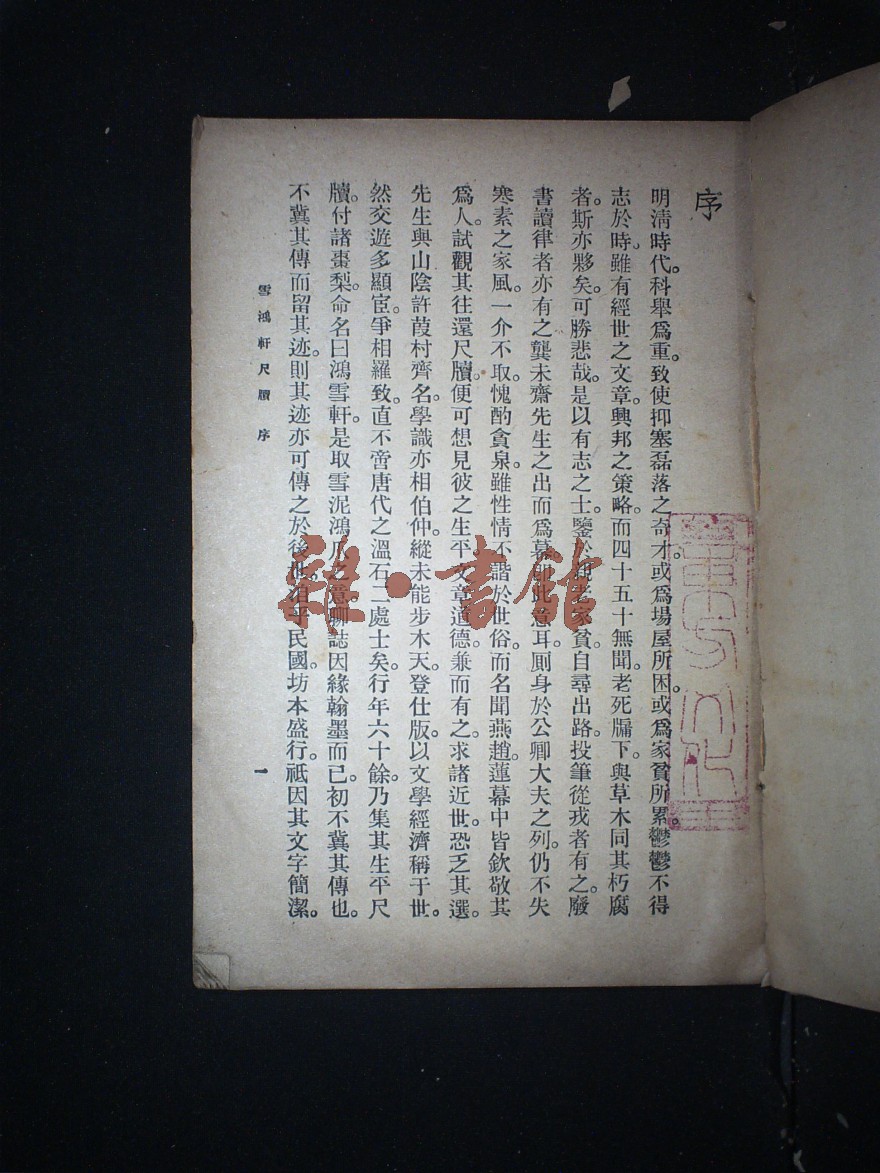 序
明淸時代。科舉爲重。致使抑塞磊落之奇才。或爲場屋所困。或爲家貧所累。鬱鬱不得
志於時。雖有經世之文章。興邦之策略。而四十五十無聞。老死牖下。與草木同其朽腐
者。斯亦夥矣。可勝悲哉。是以有志之士。鑒於親老家貧。自尋出路。投筆從戎者有之。廢
書讀律者亦有之。龔未齋先生之出而爲幕此意耳。厠身於公卿大夫之列。仍不失
寒素之家風。一介不取。愧酌貪泉。雖性情不諧於世俗。而名聞燕趙。蓮幕中皆欽敬其
爲人。試觀其往還尺牘。便可想見彼之生平。文章道德。兼而有之。求諸近世。恐乏其選。
先生與山陰許葭村齊名。學識亦相伯仲。縱未能步木天。登仕版。以文學經濟稱于世。
然交遊多顯宦。爭相羅致。直不啻唐代之溫石二處士矣。行年六十餘。乃集其生平尺
牘。付諸棗梨。命名曰鴻雪軒。是取雪泥鴻爪之意。聊誌因緣翰墨而已。初不冀其傳也。
不冀其傳而留其迹。則其迹亦可傳之於後民國。坊本盛行。祗因其文字簡潔。
雪鴻軒尺牘 序
一
雜·書館